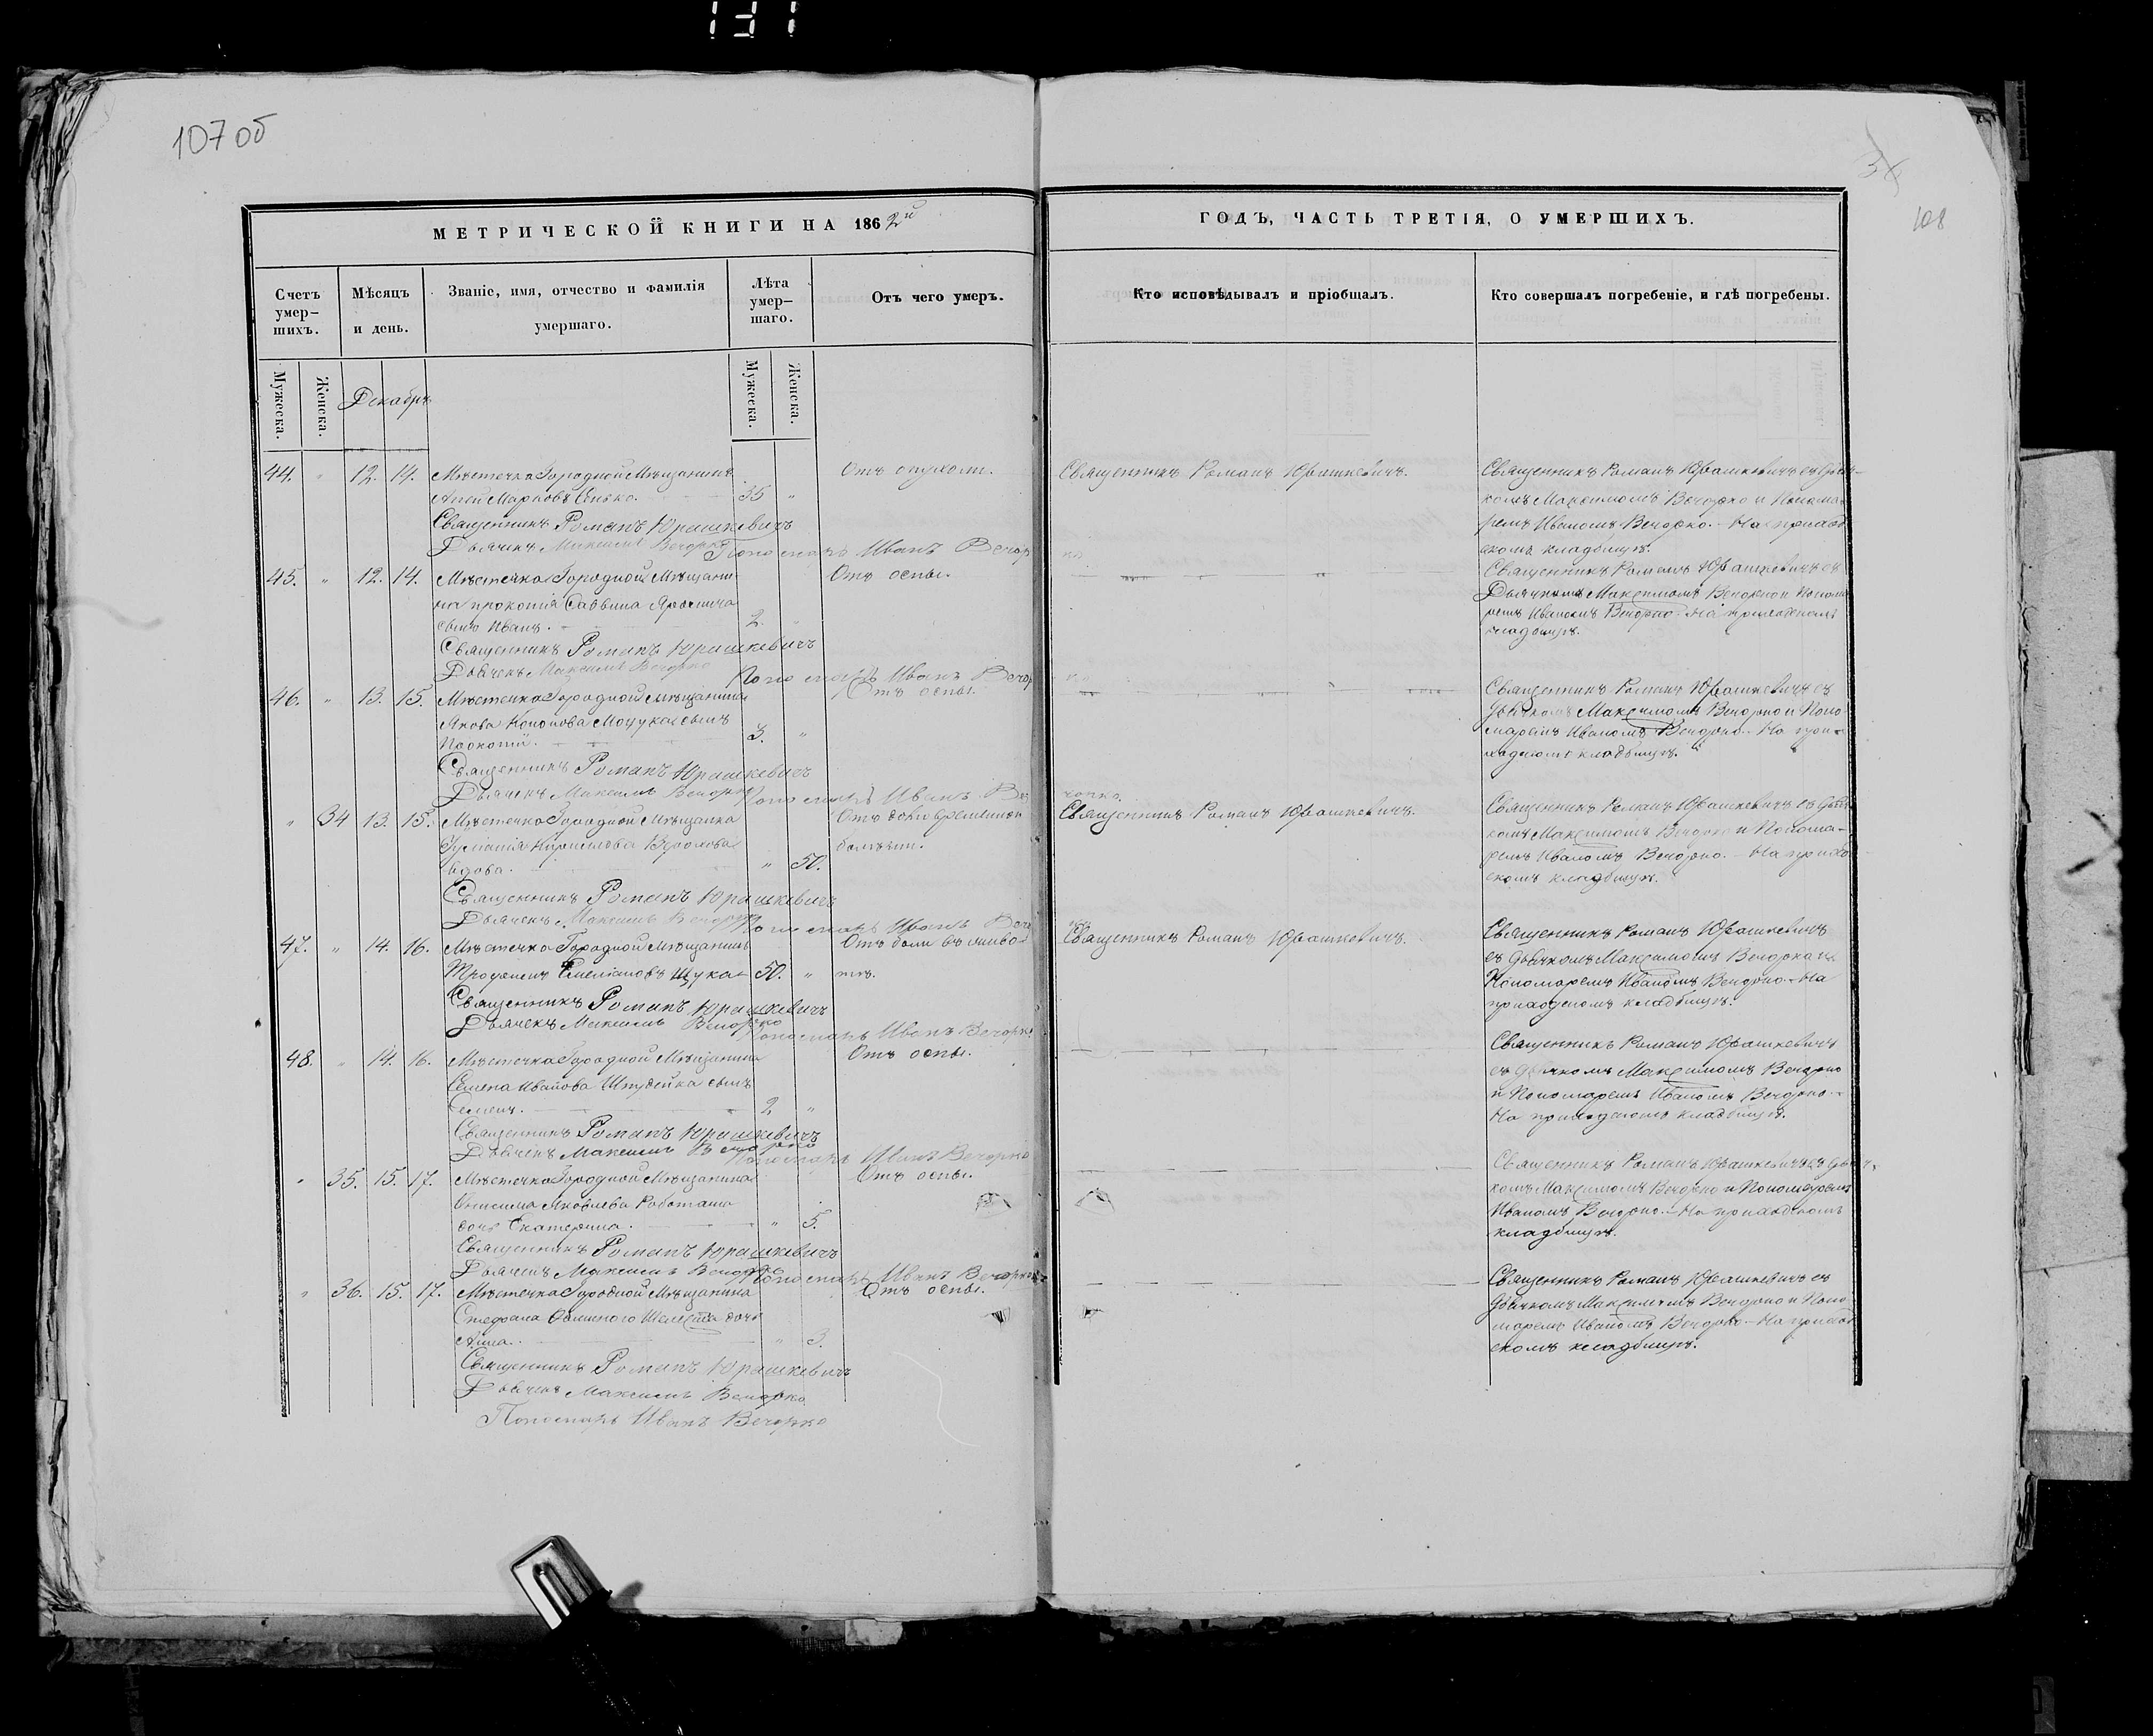 107 об
108
МЕТРИЧЕСКОЙ КНИГИ НА 1862й
ГОДЪ, ЧАСТЬ ТРЕТІЯ, О УМЕРШИХЪ.
Счетъ умер-
шихъ.
Мѣсяцъ
и день.
Званіе, имя, отчество и фамилія
умершаго.
Лѣта
умер-
шаго.
Отъ чего умеръ.
Кто исповѣдывалъ и пріобщалъ.
Кто совершалъ погребеніе, и гдѣ погребены.
Мужеска.
Женска.
Декабрь
Мужеска.
Женска.
44. " 12. 14. Мѣстечка Городной Мѣщанинъ Отъ опухоли. Священникъ Романъ Юрашкевичъ. Священникъ Романъ Юрашкевичъ съ Дьяч-
Марковъ 35 " комъ Максимомъ Вечорко и Понома-
Священникъ Романъ Юрашкевичъ ремъ Иваномъ Вечорко. - На приход
Дьячекъ Максимъ Вечорко Пономарь Иванъ Вечор
ко скомъ кладбищѣ.
45. " 12. 14. Мѣстечка Городной Мѣщани- Отъ оспы. Священникъ Романъ Юрашкевичъ съ
на Прокопія Саввина Дьячкомъ Максимомъ Вечорко и Понома
сынъ Иванъ. 2. " ремъ Иваномъ Вечорко. На приходскомъ
Священникъ Романъ Юрашкевичъ кладбищѣ.
Дьячекъ Максимъ Вечорко Пономарь Иванъ Вечор
46. " 13. 15. Мѣстечка Городной Мѣщанина Отъ оспы. Священникъ Романъ Юрашкевичъ съ
Якова Кононова сынъ Дьячкомъ Максимомъ Вечорко и Поно-
Прокопій. 3. " маремъ Иваномъ Вечорко. На при-
Священникъ Романъ Юрашкевичъ ходскомъ кладбищѣ.
Дьячекъ Максимъ Вечорко Пономарь Иванъ Ве
чорко
" 34 13. 15. Мѣстечка Городной Мѣщанка Отъ долговременной Священникъ Романъ Юрашкевичъ. Священникъ Романъ Юрашкевичъ съ Дьяч
Кирилова болѣзни. комъ Максимомъ Вечорко и Понома-
вдова. " 50. ремъ Иваномъ Вечорко. - На приход
Священникъ Романъ Юрашкевичъ скомъ кладбищѣ.
Дьячекъ Максимъ Вечорко Пономарь Иванъ Вечо
47. " 14. 16. Мѣстечка Городной Мѣщанинъ Отъ боли въ живо- Священникъ Романъ Юрашкевичъ. Священникъ Романъ Юрашкевичъ
Емеліановъ Щука 50. " тѣ. съ Дьячкомъ Максимомъ Вечорко и
Священникъ Романъ Юрашкевичъ Пономаремъ Иваномъ Вечорко. - На
Дьячекъ Максимъ Вечорко приходскомъ кладбищѣ.
Пономарь Иванъ Вечорко
48. " 14. 16. Мѣстечка Городной Мѣщанина Отъ оспы. Священникъ Романъ Юрашкевичъ
Семена Иванова сынъ съ Дьячкомъ Максимомъ Вечорко
Семенъ. 2 " и Пономаремъ Иваномъ Вечорко. -
Священникъ Романъ Юрашкевичъ На приходскомъ кладбищѣ.
Дьячекъ Максимъ Вечорко
Пономарь Иванъ Вечорко
" 35. 15. 17. Мѣстечка Городной Мѣщанина Отъ оспы. Священникъ Романъ Юрашкевичъ съ Дьяч-
Онисима Яковлева комъ Максимомъ Вечорко и Пономаремъ
дочь Екатерина. " 5. Иваномъ Вечорко. - На приходскомъ
Священникъ Романъ Юрашкевичъ кладбищѣ.
Дьячекъ Максимъ Вечорко Пономарь Иванъ Вечорко
" 36. 15. 17. Мѣстечка Городной Мѣщанина Отъ оспы. Священникъ Романъ Юрашкевичъ съ
Стефана дочь Дьячкомъ Максимомъ Вечорко и Поно-
Анна. " 3. маремъ Иваномъ Вечорко - На приход
Священникъ Романъ Юрашкевичъ скомъ кладбищѣ.
Дьячекъ Максимъ Вечорко
Пономарь Иванъ Вечорко